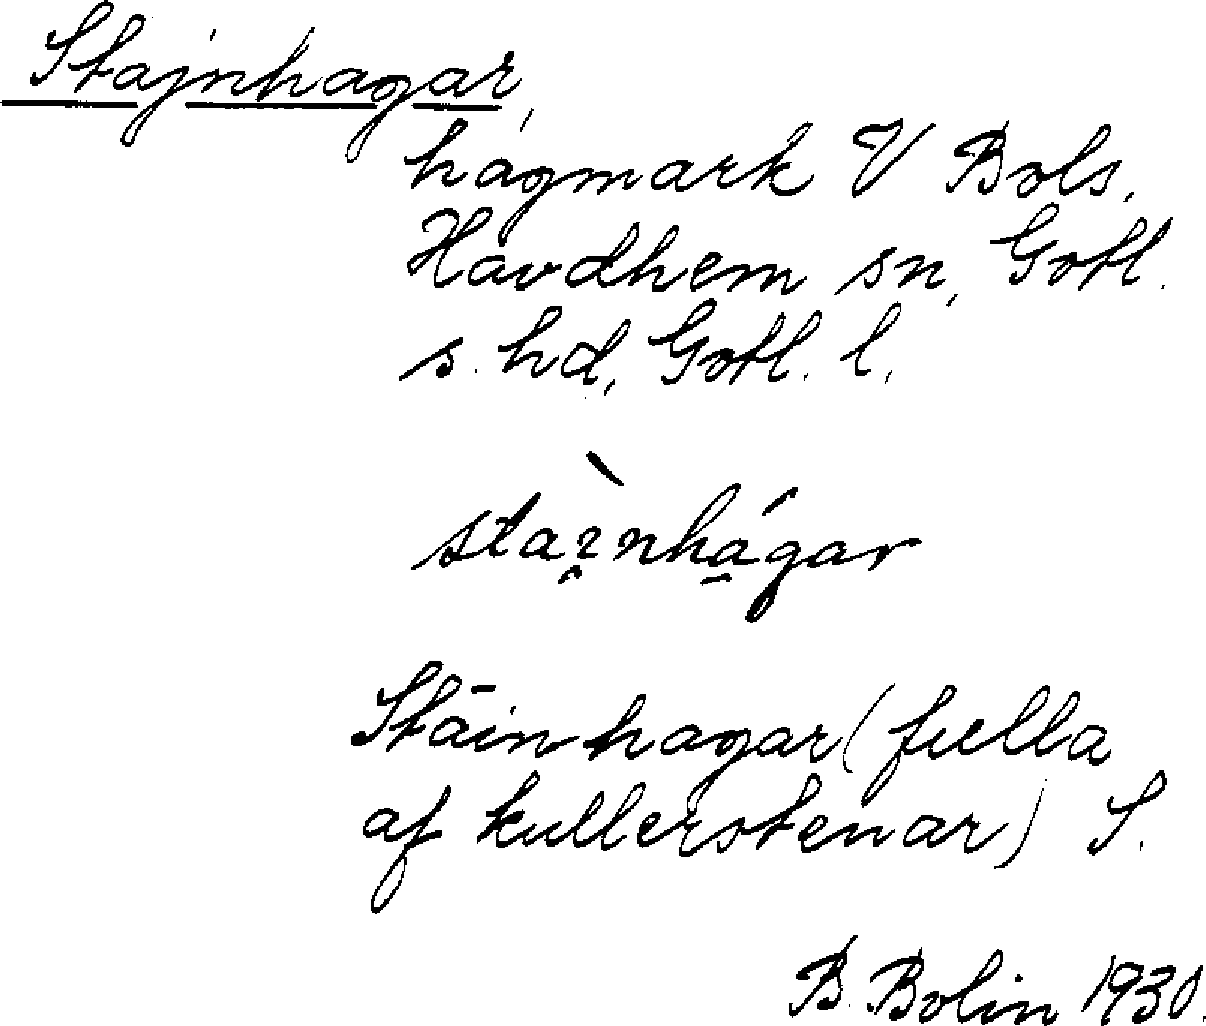 Stajnhagar,
hagmark V Bols,
Havdhem sn, Gotl.
s. hd, Gotl. l.
staı̯nhā̀gar
Stāinhagar (fulla
af kullerstenar) S.
B. Bolin 1930.